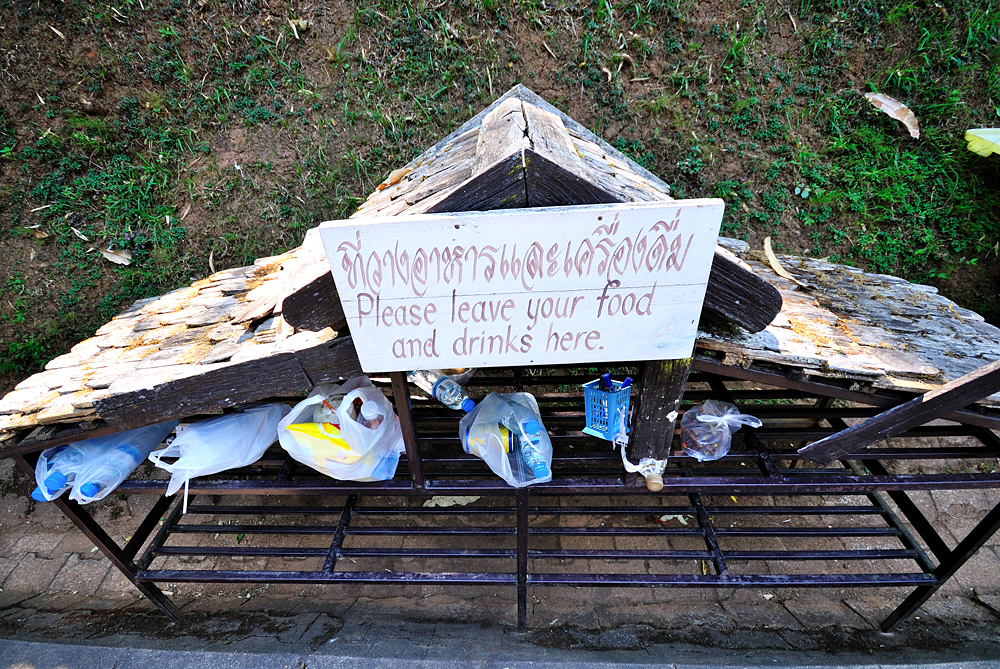 ที่วางอาหารและเครื่องดื่ม
Please leave your food
and drinks here.